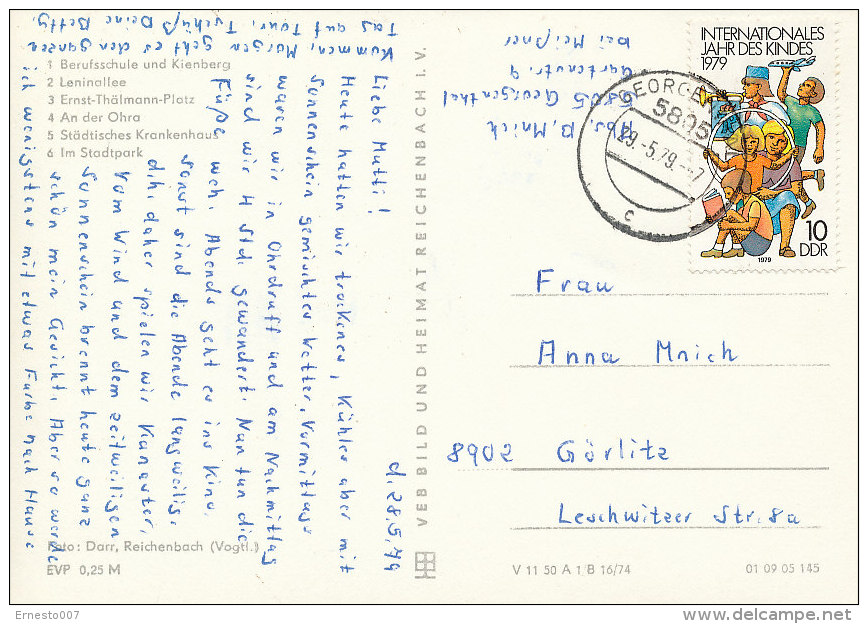 1 Berufsschule und Kienberg
2 Leninallee
3 Ernst-Thälmann-Platz
4 An der Ohra
5 Städtisches Krankenhaus
6 Im Stadtpark
d. 28.5.79
Liebe Mutti!
Heute hatten wir trockenes, kühles aber mit
Sonnenschein gemischtes Wetter. Vormittags
waren wir in Ohrdruff und am Nachmittag
sind wir 4 Std. gewandert. Nun tun die
Füße weh. Abends geht es ins Kino,
sonst sind die Abende langweilig,
d.h. daher spielen wir Kanaster.
Vom Wind und dem zeitweiligen
Sonnenschein brennt heute ganz
schön mein Gesicht. Aber so werde
ich wenigstens mit etwas Farbe nach Hause
kommen. Morgen geht es den ganzen
Tag auf Tour. Tschüß Deine Betty.
Foto: Darr, Reichenbach (Vogtl.)
EVP 0,25 M
VEB BILD UND HEIMAT REICHENBACH I. V.
Abs. B. Mnich
5805 Georgenthal
Gartenstr. 9
bei Meißner
GEORGEN
5805
29.-5.79.-7
c
INTERNATIONALES
JAHR DES KINDES
1979
10
DDR
1979
Frau
Anna Mnich
8902 Görlitz
Leschwitzer Str. 8a
V 11 50 A 1/B 16/74
01 09 05 145
Ernesto007
delcampe.net